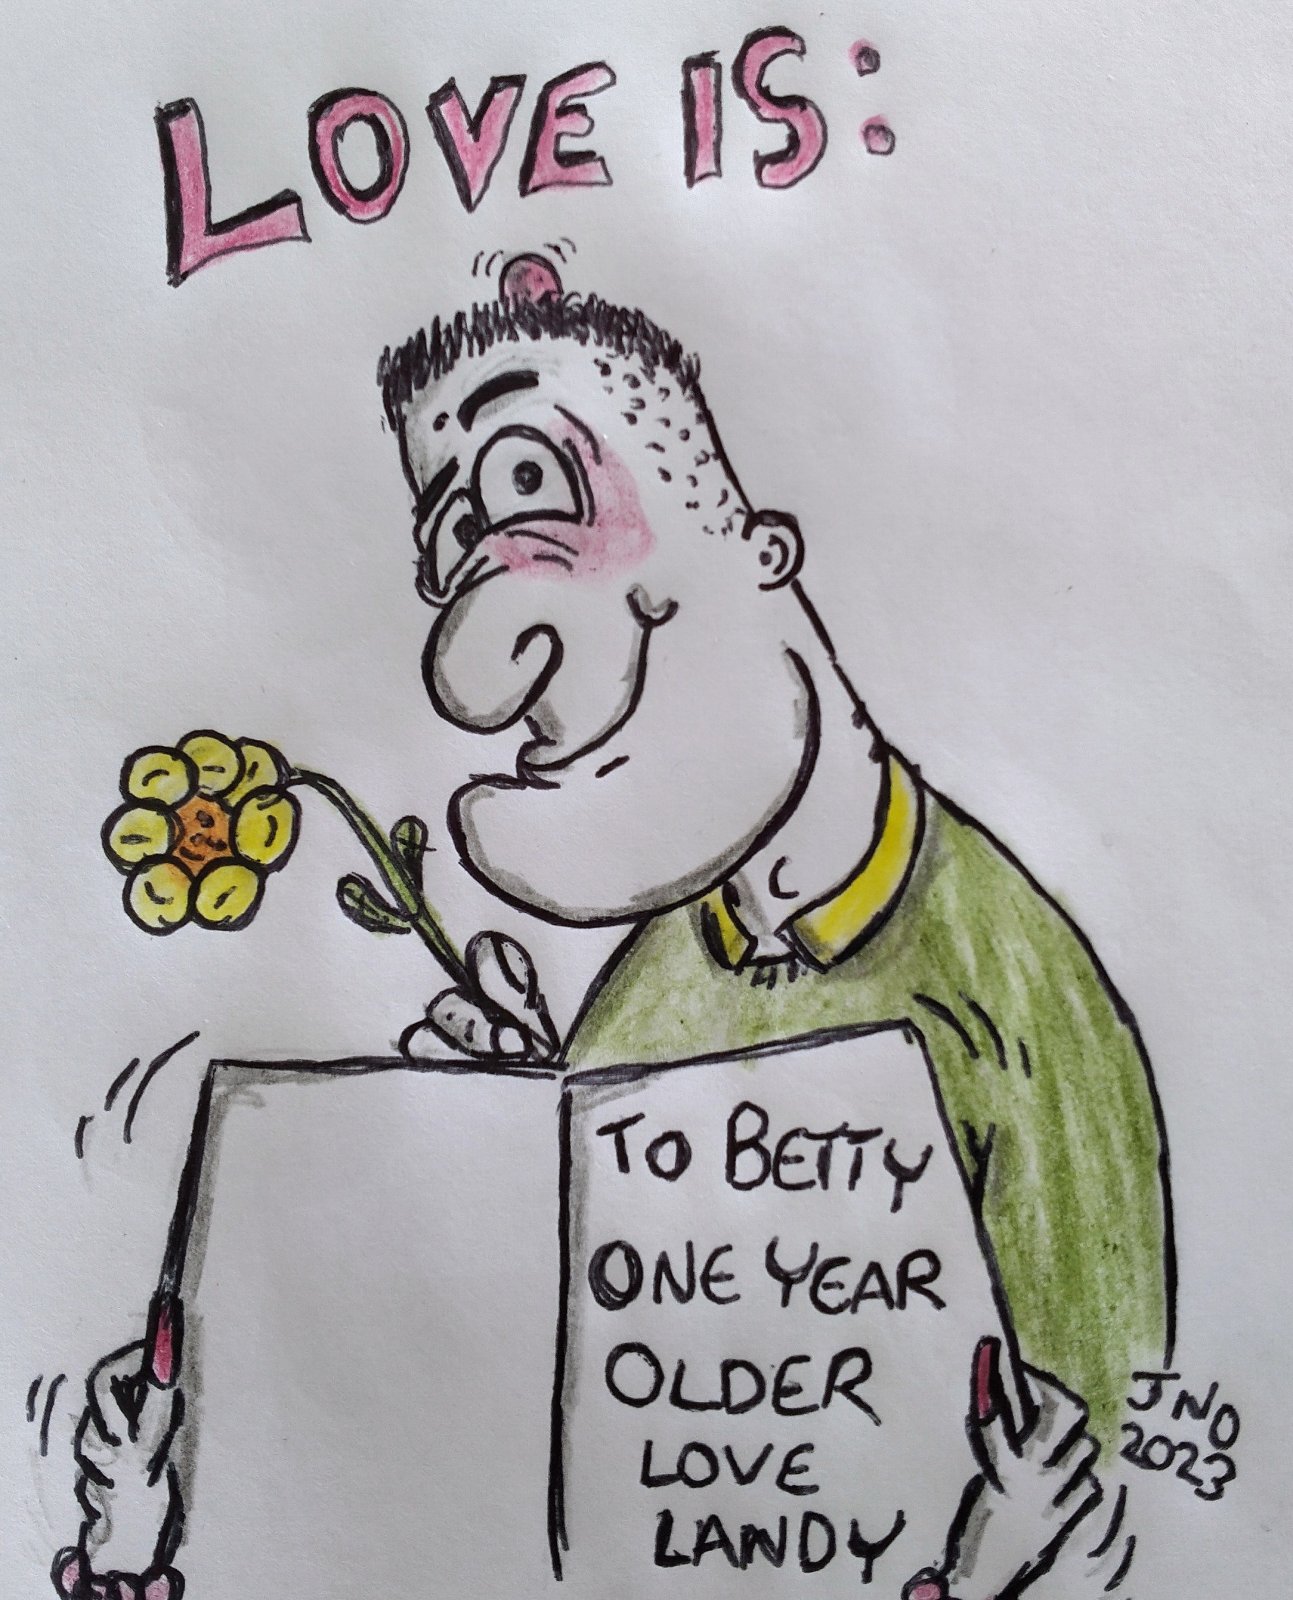 LOVE IS:
TO BETTY
ONE YEAR
OLDER
LOVE
LANDY
JNO
2023